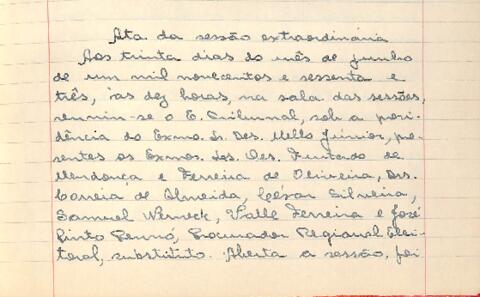 Ata da sessão extraordinária
Aos trinta dias do mês de junho
de um mil novecentos e sessenta e
três, às dez horas, na sala das sessões,
reuniu-se o E. Tribunal, sob a presi-
dência do Exmo. Sr. Des. Mello Júnior, pre-
sentes os Exmos. Srs. Des. Furtado de
Mendonça e Ferreira de Oliveira, Drs.
Correia de Almeida, César Silveira,
Samuel Werneck, Valle Ferreira e José
Pinto Rennó, Procurador Regional Elei-
toral, substituto. Aberta a sessão, foi